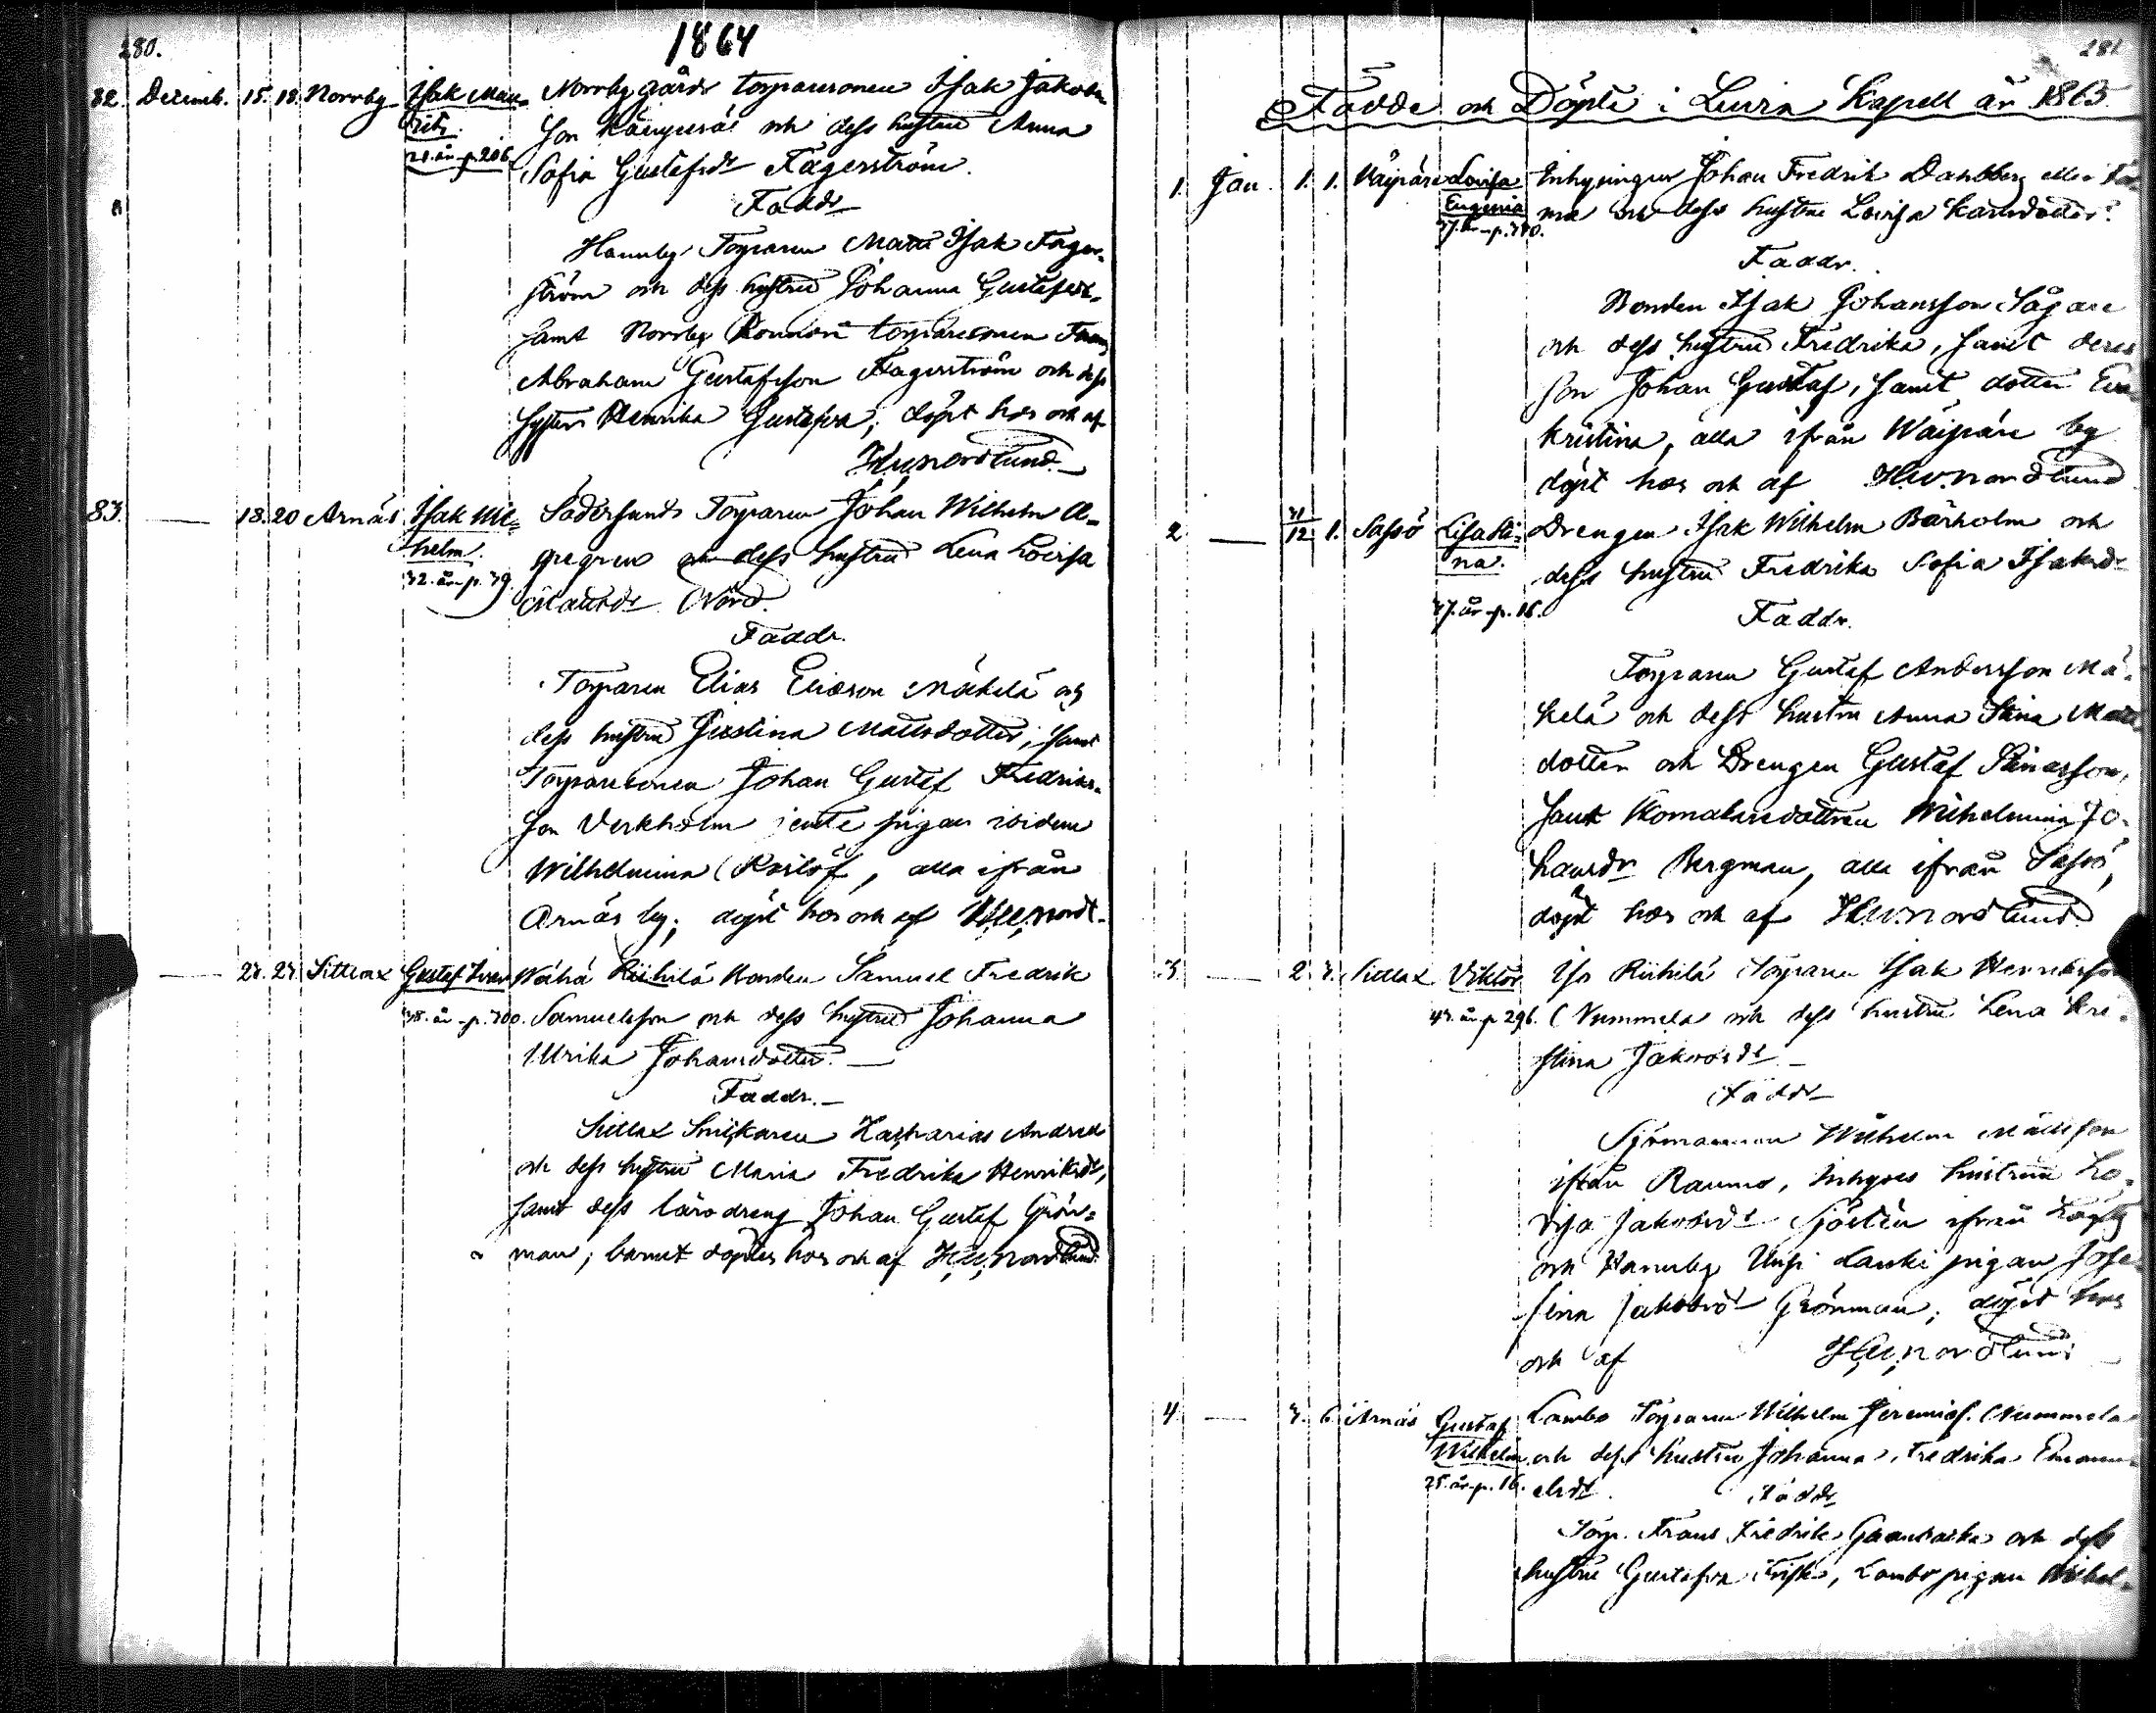 280.
1864
82. Decemb. 15. 18. Norrby Isak Mau- Norrby gårds torparsonen Isak Jakobs
ritz. son och dess hustru Anna
21. år p. 206. Sofia Gustafsdr Fagerström.
Faddr
Hannby Torparen Matts Isak Fager-
ström och dess hustru Johanna Gustafsdr
samt Norrby torparesonen Frans
Abraham Gustafsson Fagerström och dess
syster Henrika Gustafva; döpt hos och af
H.W. Nordlund.
83. — 18. 20 Arnäs Isak Wil- Södersunds Torparen Johan Wilhelm
helm. och dess hustru Lena Lovisa
32. år p. 39. Nord.
Faddr.
Torparen Elias Eliasson Mäkelä och
dess hustru Justina Mattsdotter, samt
Torparesonen Johan Gustaf Fredriks-
son Verkholm jemte pigan ibidem
Wilhelmina Roslöf, alla ifrån
Arnäs by; döpt hos och af H.W. Nordl-
— 27. 27. Sittlax Gustaf Ivar Wähä Riihelä Bonden Samuel Fredrik
38. år - p. 300. Samuelsson och dess hustru Johanna
Ulrika Johansdotter. —
Faddr. —
Sittlax Snickaren Zacharias Andreä
och dess hustru Maria Fredrika Henriksdr,
samt dess lärodreng Johan Gustaf Grön-
man; barnet döptes hos och af H.W. Nordlund.
281
Födde och Döpte i Luvia Kapell år 1865
1. Jan. 1. 1. Väipäre Lovisa Inhysingen Johan Fredrik Dahlberg eller
Eugenia och dess hustru Lovisa Karlsdotter.
37. år - p. 340.
Faddr.
Bonden Isak Johansson Sågare
och dess hustru Fredrika, samt deras
son Johan Gustaf, samt dotter Eva
Kristina, alla ifrån Wäipäre by
döpt hos och af H.W. Nordlund
2. — 31/12 1. Sassö Lisa Sti- Drengen Isak Wilhelm Bärholm och
na. dess hustru Fredrika Sofia Isaksdr
37. år - p. 16.
Faddr.
Torparen Gustaf Andersson Mä-
kelä och dess hustru Anna Stina Matts
dotter och Drengen Gustaf
samt Wilhelmina Jo-
hansdr Bergman, alla ifrån Sassö,
döpt hos och af H.W. Nordlund
3. — 2. 3. Sittlax Viktor Riihilä Torparen Isak Henriksson
43. år p. 296. Nummela och dess hustru Lena Kri-
stina Jakobsdr —
Faddr
Sjömannen Wilhelm Mattsson
ifrån Raumo, Inhyses hustrun Lo-
visa Jakobsdr Sjöstén ifrån
och Hannby Uusi Lauki pigan Jose-
fina Jakobsdr Grönman; döpt hos
och af H.W. Nordlund
4. — 3. 6. Arnäs Gustaf Lambo Torparen Wilhelm Jeremias. Nummela
Wilhelm och dess hustru Johanna Fredrika Emanu-
25. år p. 16. elsdr.
Faddr
Torp. Frans Fredrik och dess
hustru Gustafva Frisk, Lambo pigan Wilhel-